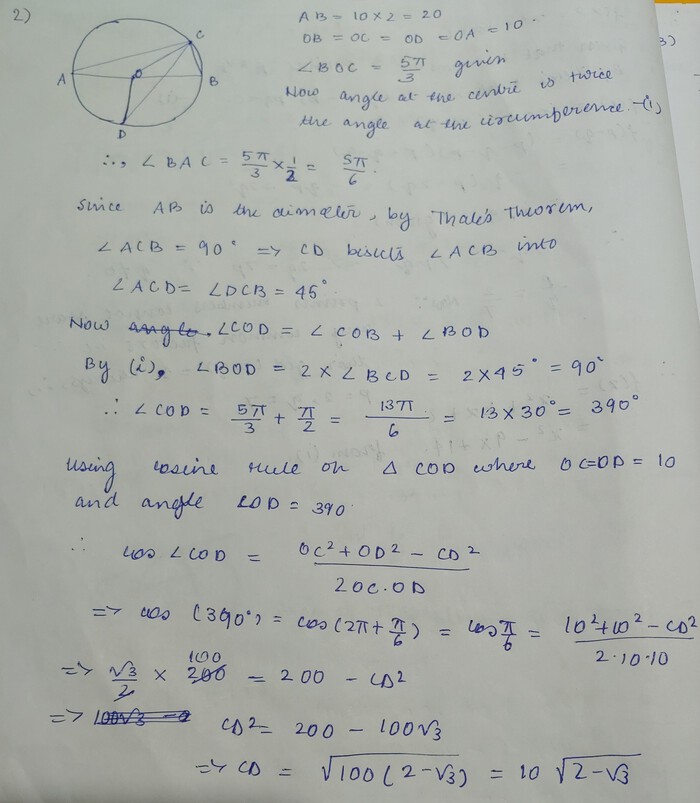 2)
A B = 10 × 2 = 20
OB = OC = OD = OA = 10
3)
C
A
O
B
D
∠BOC = 5π/3 given
Now angle at the centre is twice
the angle at the circumference -(i)
∴, ∠BAC = 5π/3 × 1/2 = 5π/6.
Since AB is the diameter, by Thale's Theorem,
∠ACB = 90° => CD bisects ∠ACB into
∠ACD = ∠DCB = 45°
Now angle. ∠COD = ∠COB + ∠BOD
By (i), ∠BOD = 2 × ∠BCD = 2×45° = 90°
∴ ∠COD = 5π/3 + π/2 = 13π/6 = 13 × 30° = 390°
Using cosine rule on Δ COD where OC=OD = 10
and angle COD = 390
∴ cos ∠COD = OC² + OD² - CD² / 2OC.OD
=> cos (390°) = cos(2π + π/6) = cos π/6 = 10² + 10² - CD² / 2·10·10
=> √3/2 × 200 100 = 200 - CD²
=> 100√3 - 2 CD² = 200 - 100√3
=> CD = √100(2-√3) = 10 √2-√3